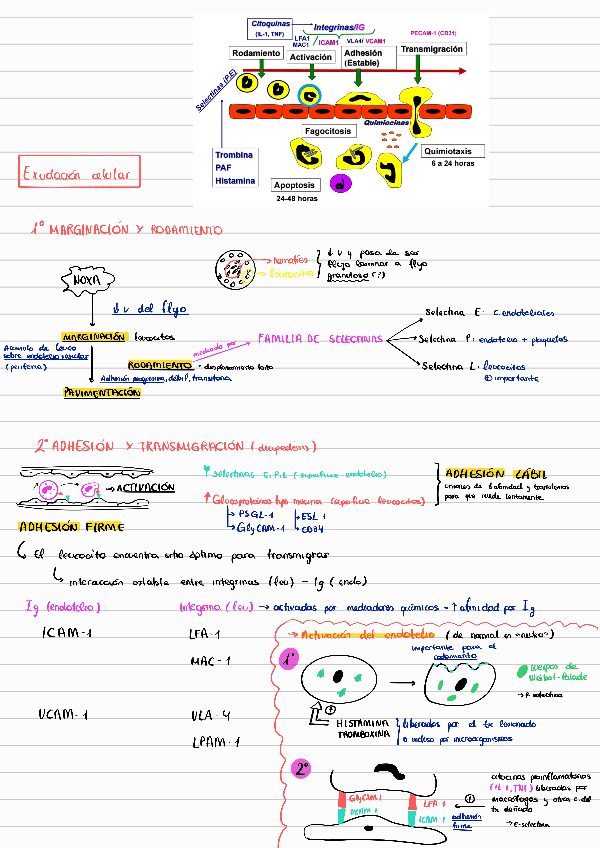 Citoquinas
(IL-1, TNF)
Integrinas/IG
LFA1
MAC1
ICAM1
VLA4/ VCAM1
PECAM-1 (CD31)
Rodamiento
Activación
Adhesión
(Estable)
Transmigración
Selectinas (P,E)
Quimiocinas
Fagocitosis
Trombina
PAF
Histamina
Quimiotaxis
6 a 24 horas
Apoptosis
24-48 horas
Exudación celular
1º MARGINACIÓN Y RODAMIENTO
NOXA
→ hematíes
→ leucocitos
↓ v y pasa de ser
flujo laminar a flujo
granuloso (?)
↓ v del flujo
MARGINACIÓN leucocitos
Acúmulo de leuco
sobre endotelio vascular
(periferia)
mediado por
FAMILIA DE SELECTINAS
Selectina E: c. endoteliales
Selectina P: endotelio + plaquetas
Selectina L: leucocitos
importante
RODAMIENTO - desplazamiento lento
Adhesión progresiva, débil, transitoria
PAVIMENTACIÓN
2º ADHESIÓN Y TRANSMIGRACIÓN (diapédesis)
→ ACTIVACIÓN
Selectinas E, P, L (superficie endotelio)
Glucoproteínas tipo mucina (superficie leucocitos)
PSGL-1
ESL 1
GlyCAM-1
CD34
ADHESIÓN LÁBIL
uniones de labilidad y transitorias
para que ruede lentamente
ADHESIÓN FIRME
El leucocito encuentra sitio óptimo para transmigrar
interacción estable entre integrinas (leu) - Ig (endo)
Ig (endotelio)
Integrina (leu) → activadas por mediadores químicos = ↑ afinidad por Ig
ICAM-1
LFA-1
MAC-1
VCAM-1
VLA-4
LPAM-1
→ Activación del endotelio (de normal es "neutro")
1º
importante para el
rodamiento
cuerpos de
Weibel-Palade
→ P selectina
HISTAMINA
TROMBOXINA
liberados por el tx lesionado
o incluso por microorganismos
2º
GlyCAM 1
VCAM 1
LFA 1
ICAM 1
adhesión
firme
citocinas proinflamatorias
(IL-1, TNF) liberadas por
macrófagos y otras c. del
tx dañado
→ E-selectina